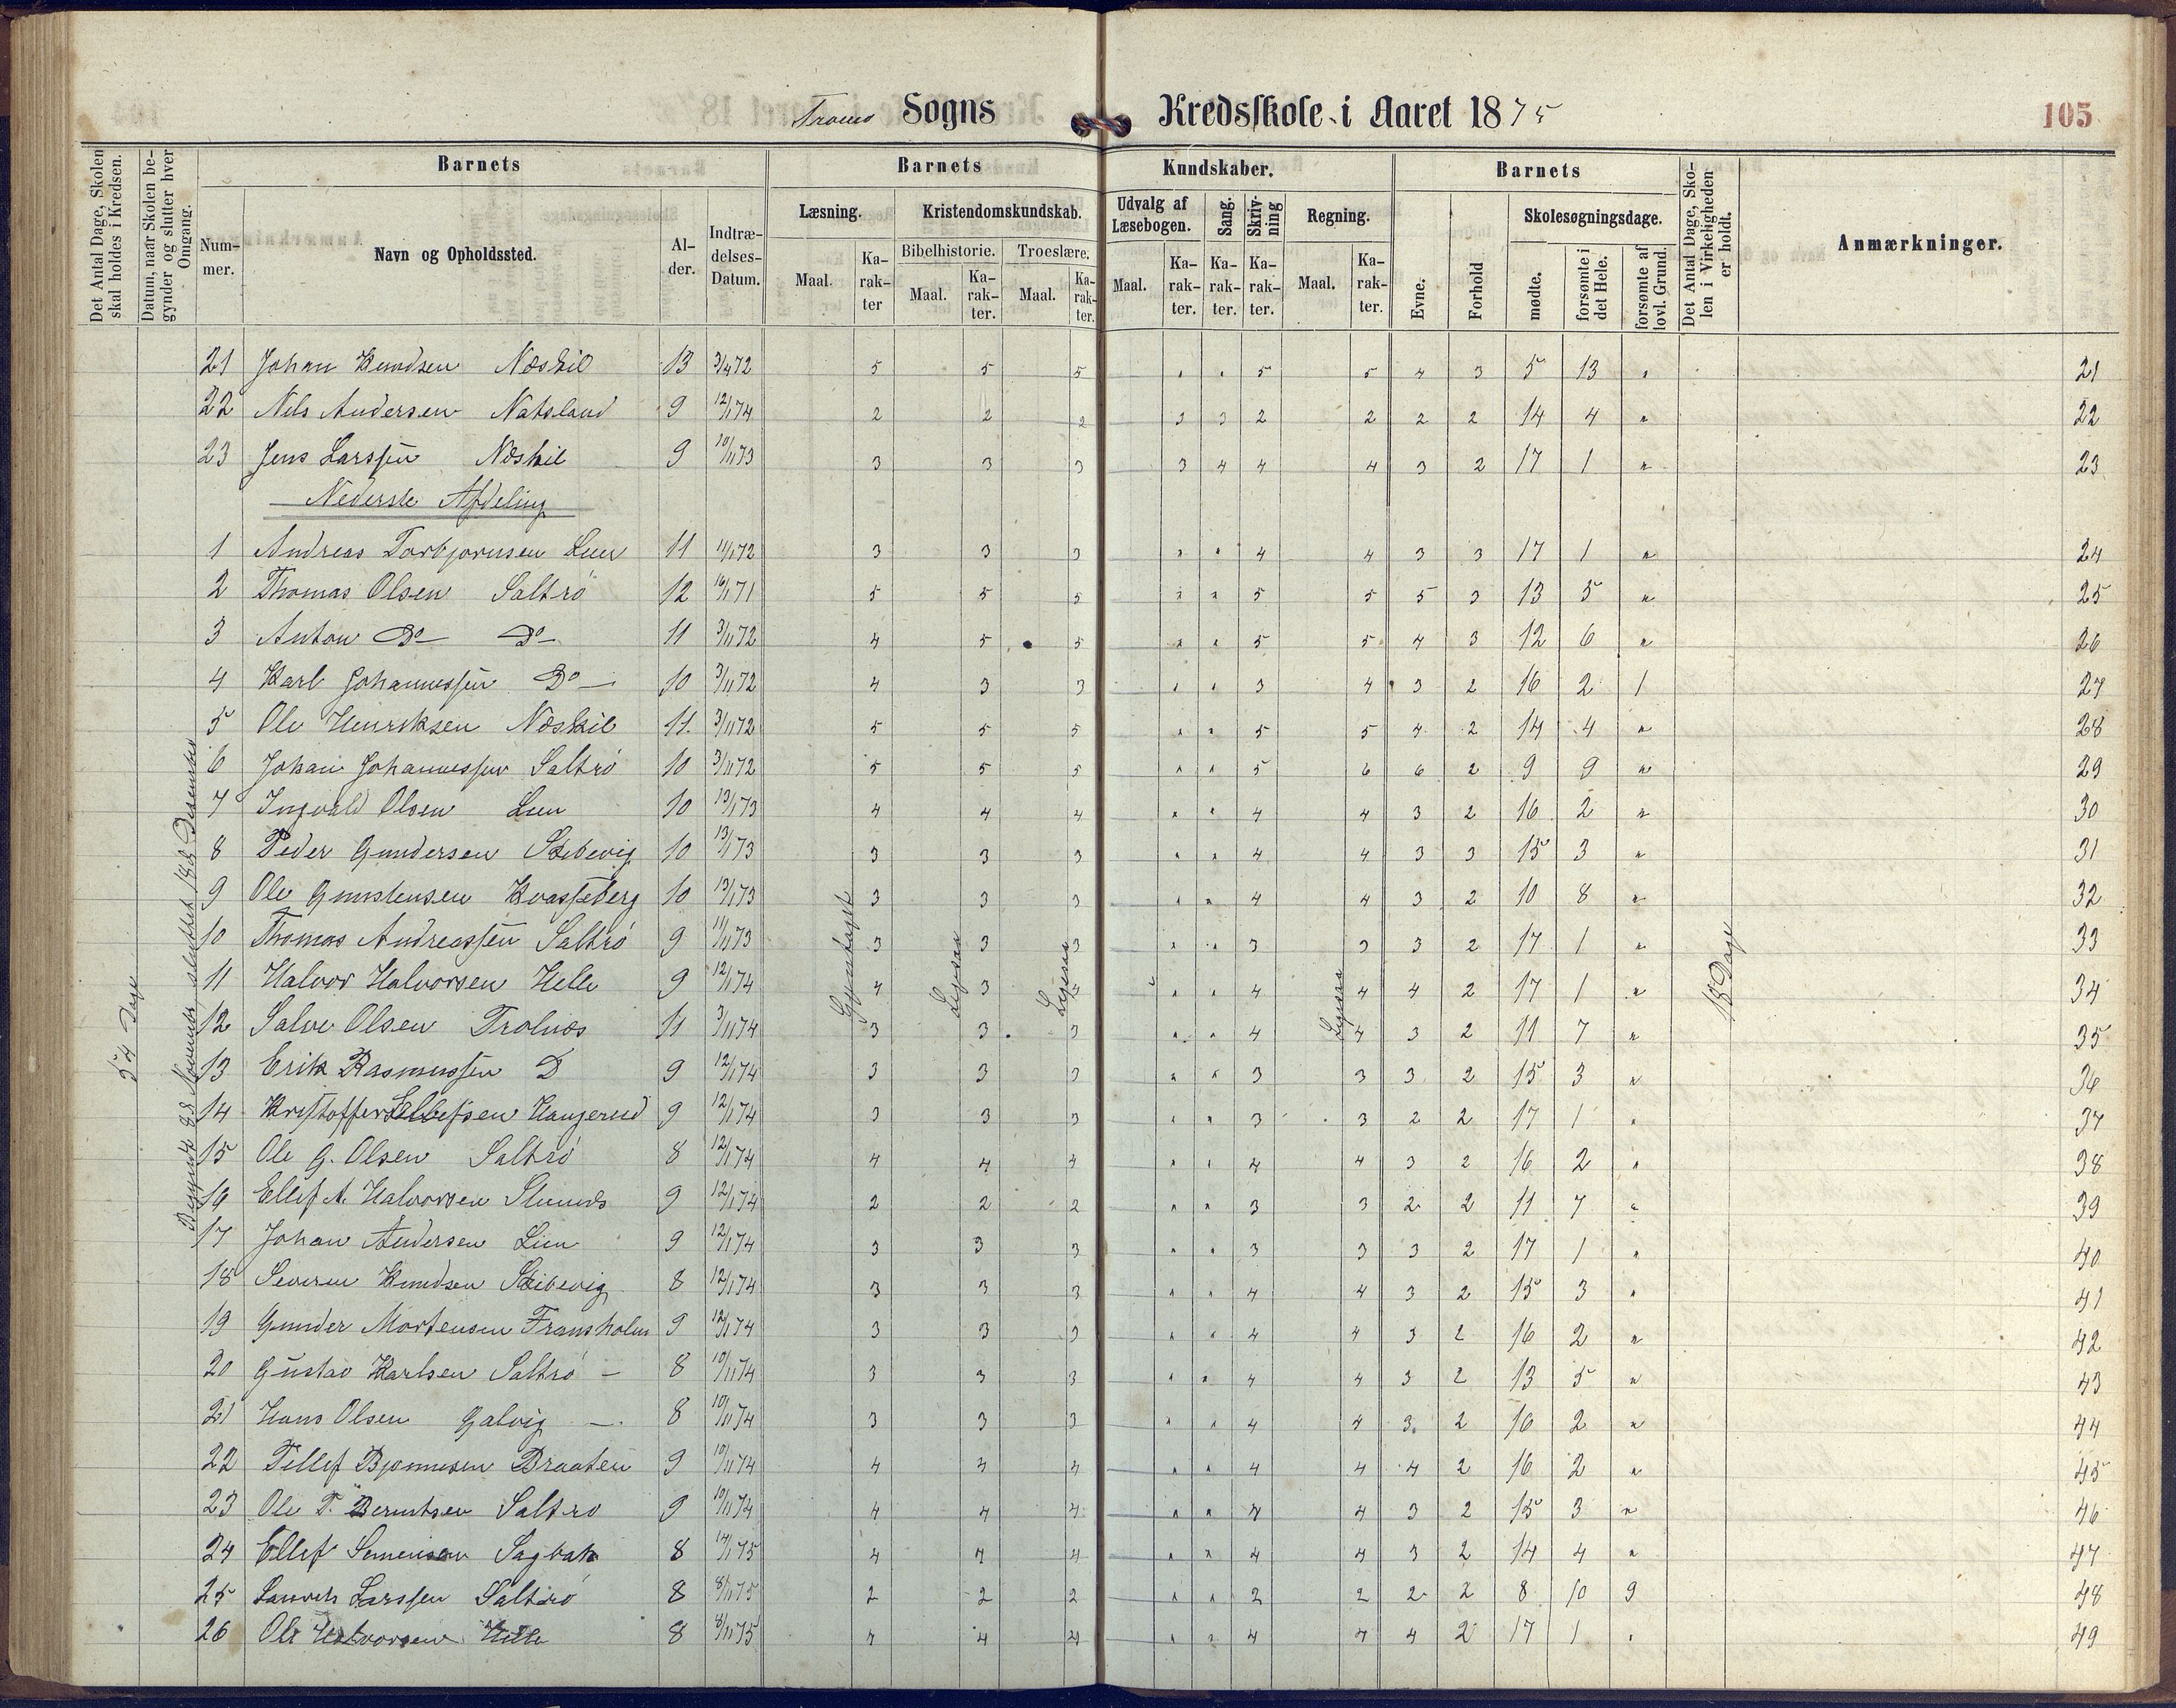 Tromø Sogns Kredsskole i Aaret 1875
105
Det Antal Dage, Skolen skal holdes i Kredsen.
Datum, naar Skolen begynder og slutter hver Omgang.
Barnets
Nummer.
Navn og Opholdssted.
Alder.
Indtrædelses-Datum.
Barnets Kundskaber.
Læsning.
Maal.
Karakter
Kristendomskundskab.
Bibelhistorie.
Maal.
Karakter.
Troeslære.
Maal.
Karakter.
Udvalg af Læsebogen.
Maal.
Karakter.
Sang.
Karakter.
Skrivning
Karakter.
Regning.
Maal.
Karakter.
Barnets
Evne.
Forhold
Skolesøgningsdage.
mødte.
forsømte i det Hele.
forsømte af lovl. Grund.
Det Antal Dage, Skolen i Virkeligheden er holdt.
Anmærkninger.
21 Johan Knudsen Næskil 13 3/4 72 5 5 5 " " 5 5 4 3 5 13 " 21
22 Nils Andersen Natsland 9 12/1 74 2 2 2 3 3 2 2 2 2 14 4 " 22
23 Jens Larssen Næskil 9 10/11 73 3 3 3 3 4 4 4 3 2 17 1 " 23
Nederste Afdeling
1 Andreas Torbjornsen Lien 11 11/1 72 3 3 3 " " 4 4 3 3 17 1 " 24
2 Thomas Olsen Saltrö 12 16/1 71 5 5 5 " " 5 5 5 3 13 5 " 25
3 Anton Do Do 11 3/11 72 4 5 5 " " 5 5 4 3 12 6 " 26
4 Karl Johannessen Do 10 3/11 72 4 3 3 " " 3 4 3 2 16 2 1 27
5 Ole Henriksen Næskil 11 3/11 72 5 5 5 " " 5 5 4 2 14 4 " 28
6 Johan Johannessen Saltrö 10 3/11 72 5 5 5 " " 5 6 6 2 9 9 " 29
7 Ingvald Olsen Lien 10 13/1 73 4 4 4 " " 4 4 3 2 16 2 " 30
8 Peder Gundersen Skibevig 10 13/1 73 3 3 3 " " 4 4 3 3 15 3 " 31
9 Ole Gunstensen Kvasteberg 10 13/1 73 3 3 3 " " 4 4 3 2 10 8 " 32
10 Thomas Andreassen Saltrö 9 11/11 73 3 3 3 " " 3 3 3 2 17 1 " 33
11 Halvor Halvorsen Helle 9 12/1 74 4 3 4 " " 4 4 4 2 17 1 " 34
12 Salve Olsen Trolnæs 11 3/11 74 3 3 3 " " 4 4 3 2 11 7 " 35
13 Erik Rasmussen D 9 12/1 74 3 3 3 " " 3 3 3 2 15 3 " 36
14 Kristoffer Ellefsen Haugerud 9 12/1 74 3 3 3 " " 3 3 2 2 17 1 " 37
15 Ole G. Olsen Saltrö 8 12/1 74 4 4 4 " " 4 4 3 2 16 2 " 38
16 Ellef A. Halvorsen 9 12/1 74 2 2 2 " " 3 3 2 2 11 7 " 39
17 Johan Andersen Lien 9 12/1 74 3 3 3 " " 3 3 3 2 17 1 " 40
18 Severin Knudsen Skibevig 8 12/1 74 3 3 3 " " 4 4 3 2 15 3 " 41
19 Gunder Mortensen Fransholm 9 12/1 74 3 3 3 " " 4 4 3 2 16 2 " 42
20 Gustav Karlsen Saltrö 8 10/11 74 3 3 3 " " 4 4 3 2 13 5 " 43
21 Hans Olsen Galvig 8 10/11 74 3 3 3 " " 4 4 3 2 16 2 " 44
22 Tellef Bjonnesen Braaten 9 10/11 74 4 4 4 " " 4 4 4 2 16 2 " 45
23 Ole T. Berntsen Saltro 9 10/11 74 4 4 4 " " 4 4 3 2 15 3 " 46
24 Ellef Simensen Sagbak 8 14/1 75 4 4 4 " " 4 4 3 2 14 4 " 47
25 Laurits Larssen Saltrö 8 8/11 75 2 2 2 " " 2 2 2 2 8 10 9 48
26 Ole Halvorsen Helle 8 8/11 75 4 4 4 " " 4 4 4 2 17 1 " 49
54 Dage
Begyndt 23 November, sluttet 18de Desember
Gjentaget
Ligesaa
Ligesaa
Ligesaa
18 Dage